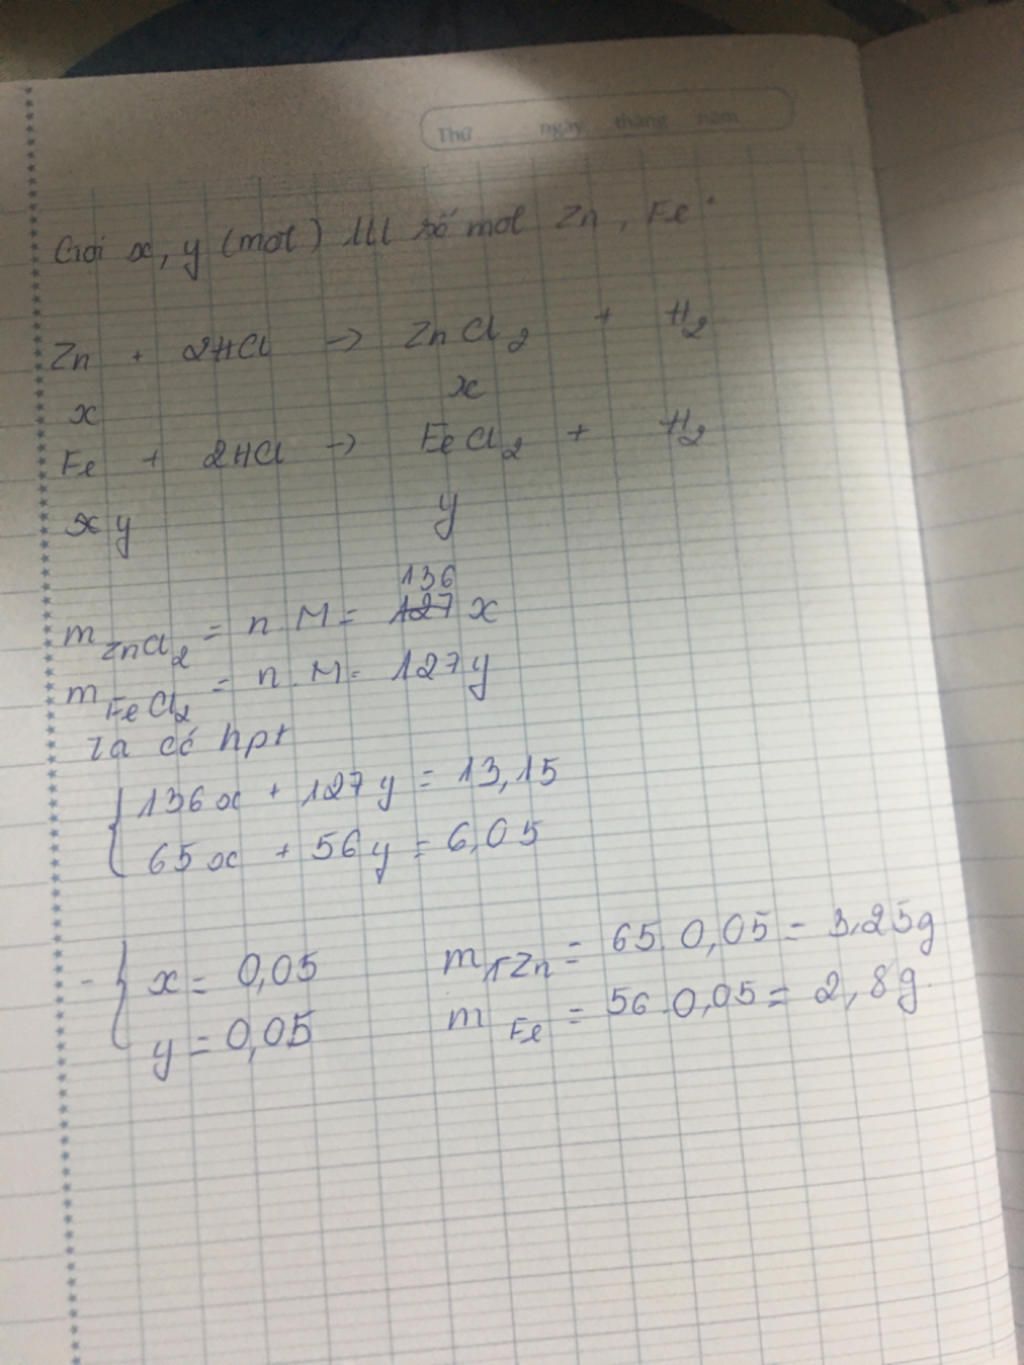 Thứ ngày tháng năm
Gọi x, y (mol) lll số mol Zn, Fe
Zn + 2HCl → ZnCl2 + H2
x x
Fe + 2HCl → FeCl2 + H2
x y y
136
mZnCl2 = n.M = 127 x
mFeCl2 = n.M = 127y
Ta có hpt
136x + 127y = 13,15
65x + 56y = 6,05
x = 0,05 mZn = 65.0,05 = 3,25g
y = 0,05 mFe = 56.0,05 = 2,8g.